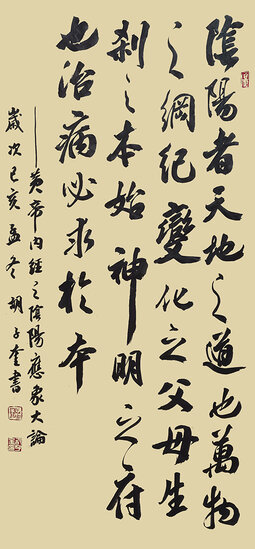 陰陽者天地之道也萬物
之綱紀變化之父母生
刹之本始神明之府
也治病必求於本
——黄帝内經之陰陽應象大論
歲次己亥孟冬胡子奎書